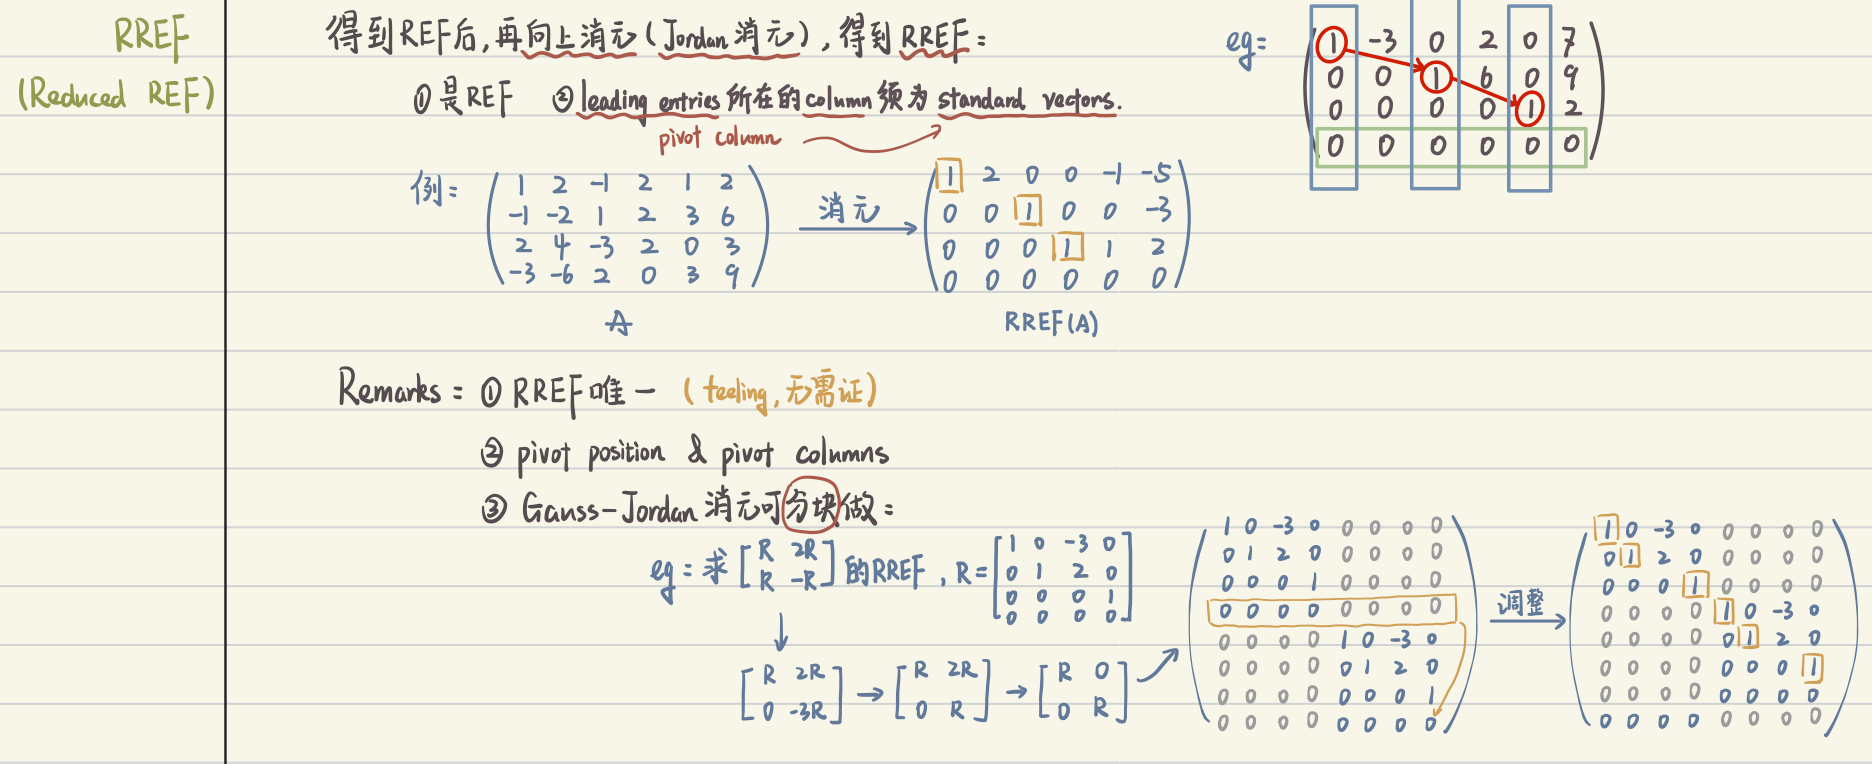 RREF
(Reduced REF)
得到REF后,再向上消元(Jordan 消元),得到RREF:
① 是REF ② leading entries 所在的column 须为 standard vectors.
pivot column
eg:
1 -3 0 2 0 7
0 0 1 6 0 9
0 0 0 0 1 2
0 0 0 0 0 0
例:
1 2 -1 2 1 2
-1 -2 1 2 3 6
2 4 -3 2 0 3
-3 -6 2 0 3 9
A
消元
1 2 0 0 -1 -5
0 0 1 0 0 -3
0 0 0 1 1 2
0 0 0 0 0 0
RREF(A)
Remarks: ① RREF唯一 (feeling, 无需证)
② pivot position & pivot columns
③ Gauss-Jordan 消元可分块做:
eg: 求 [R 2R
R -R] 的RREF, R=
1 0 -3 0
0 1 2 0
0 0 0 1
0 0 0 0
[R 2R
0 -3R]
[R 2R
0 R]
[R 0
0 R]
1 0 -3 0 0 0 0 0
0 1 2 0 0 0 0 0
0 0 0 1 0 0 0 0
0 0 0 0 0 0 0 0
0 0 0 0 1 0 -3 0
0 0 0 0 0 1 2 0
0 0 0 0 0 0 0 1
0 0 0 0 0 0 0 0
调整
1 0 -3 0 0 0 0 0
0 1 2 0 0 0 0 0
0 0 0 1 0 0 0 0
0 0 0 0 1 0 -3 0
0 0 0 0 0 1 2 0
0 0 0 0 0 0 0 1
0 0 0 0 0 0 0 0
0 0 0 0 0 0 0 0